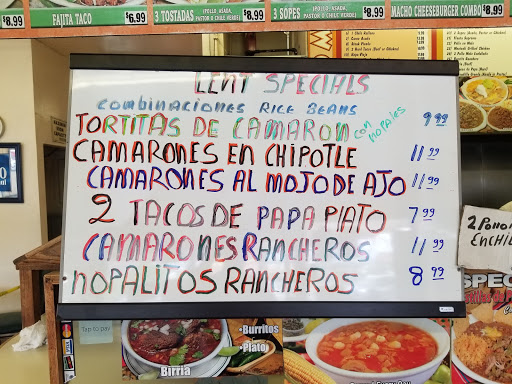 $8.99
FAJITA TACO
$6.99
3 TOSTADAS
(POLLO, ASADA,
PASTOR O CHILE VERDE)
$8.99
3 SOPES
(POLLO, ASADA,
PASTOR O CHILE VERDE)
$8.99
MACHO CHEESEBURGER COMBO
$8.99
LENT SPECIALS
COMBINACIONES RICE BEANS
TORTITAS DE CAMARON CON NOPALES 9 99
CAMARONES EN CHIPOTLE 11 99
CAMARONES AL MOJO DE AJO 11 99
2 TACOS DE PAPA PLATO 7 99
CAMARONES RANCHEROS 11 99
NOPALITOS RANCHEROS 8 99
ENCHIL
SPEC
Tap to pay
Birria
•Burritos
•Plato